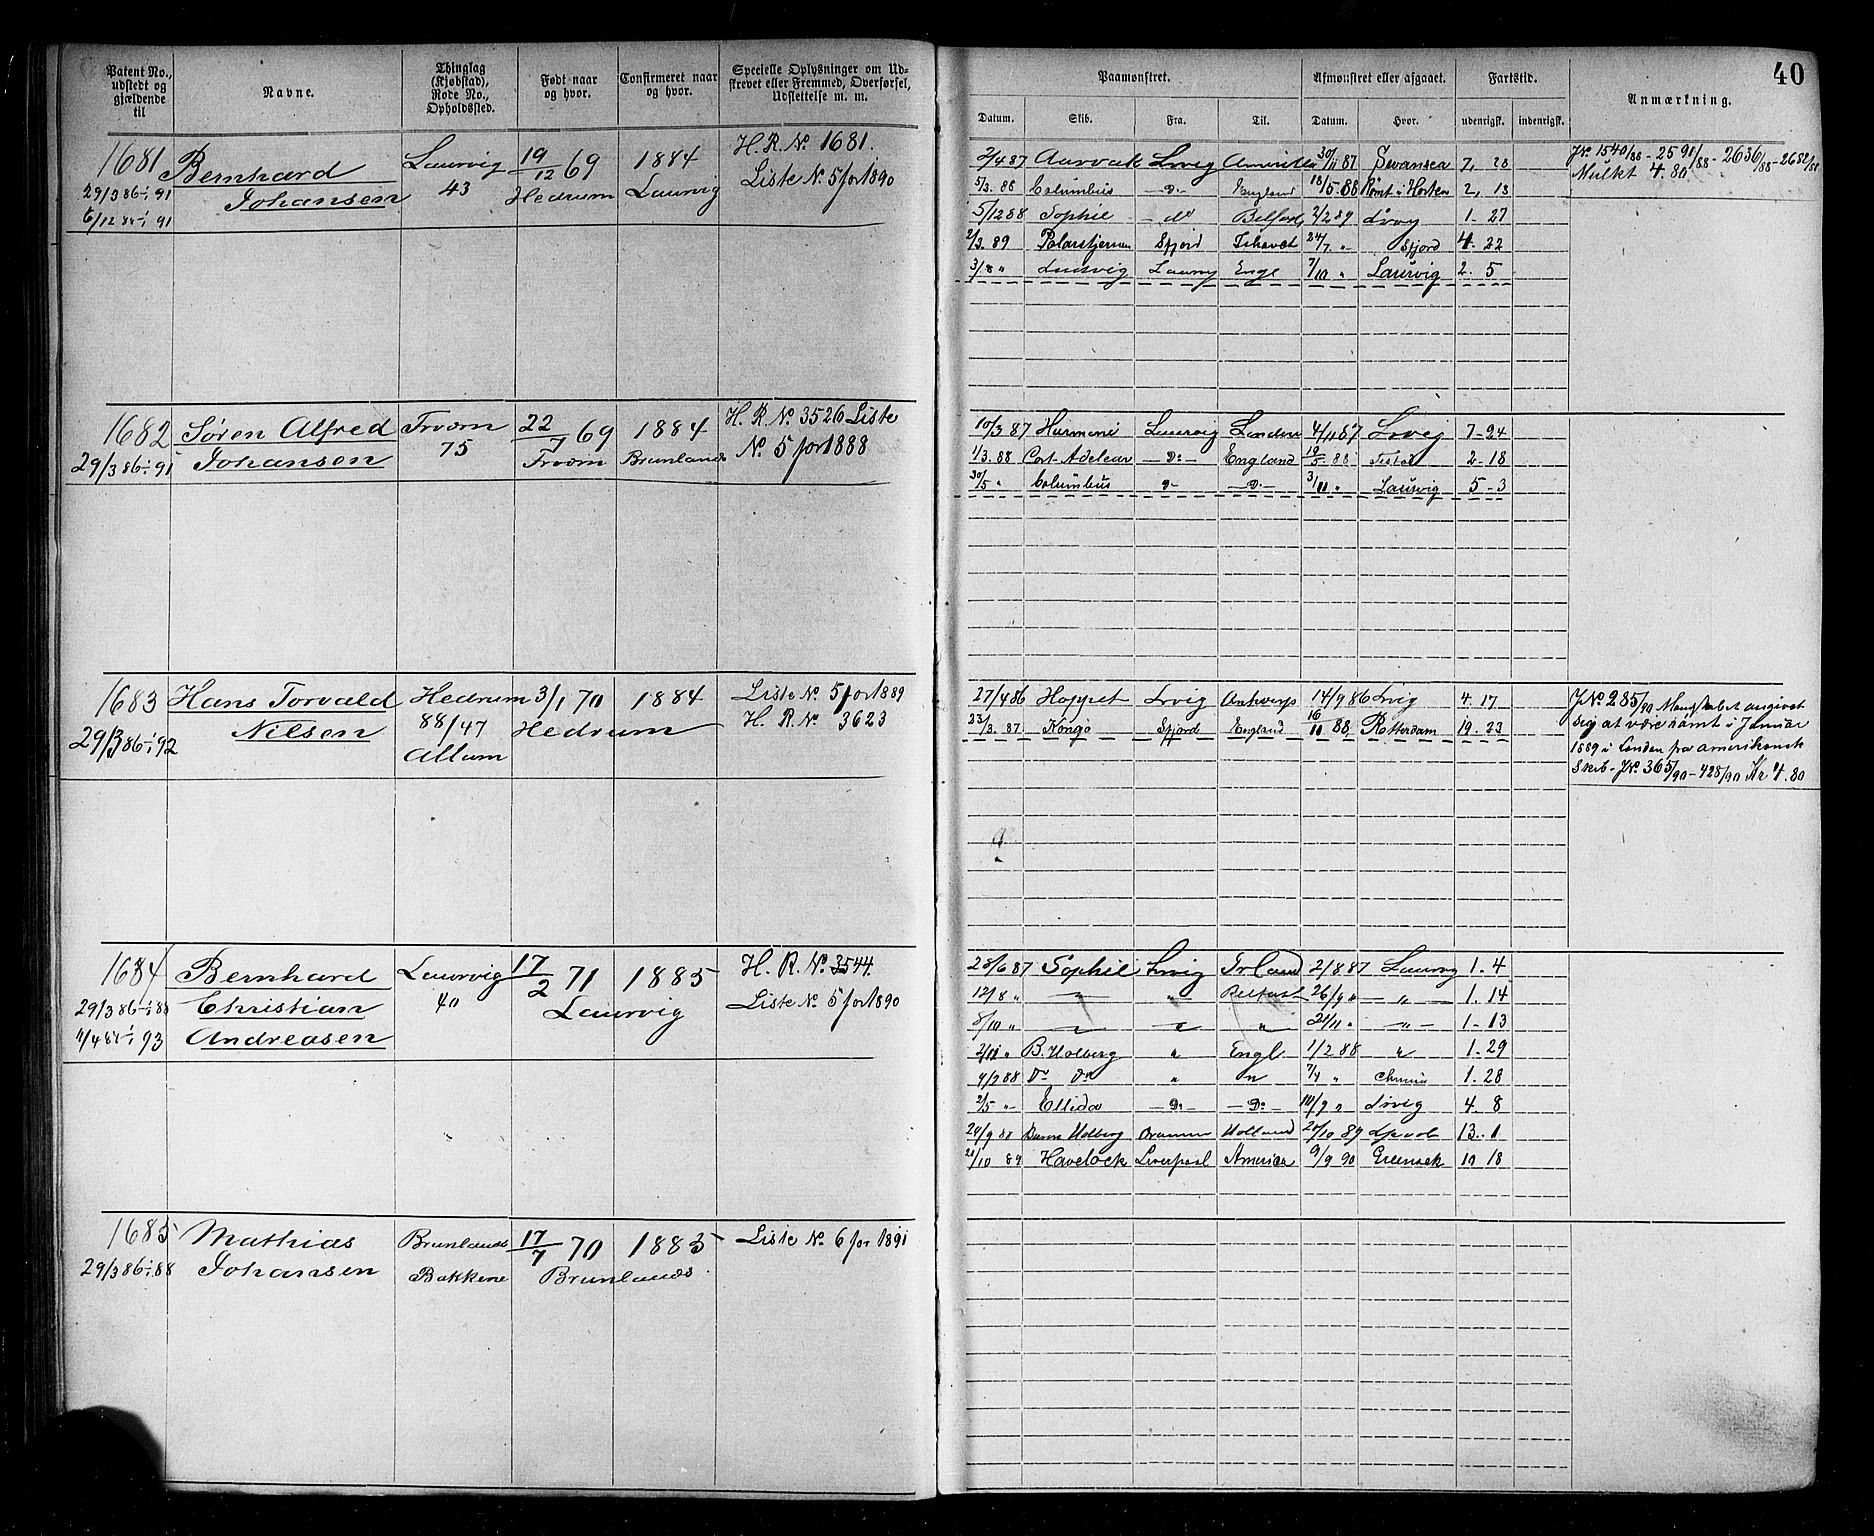 40
Patent No., udstedt og gjældende til
Navne.
Thinglag (Kjøbstad), Rode No., Opholdssted.
Født naar og hvor.
Confirmeret naar og hvor.
Specielle Oplysninger om Udskrevet eller Fremmed, Overførsel, Udslettelse m. m.
Paamønstret.
Afmønstret eller afgaaet.
Fartstid.
Anmærkning.
Datum. Skib. Fra. Til. Datum. Hvor. udenrigsk. indenrigsk.
1681 Bernhard Laurvig 19/12 69 1884 H. R. No 1681.
29/3 86-1/1 91 Johansen 43 Hedrum Laurvig Liste No. 5 for 1890
6/12 88-1/1 91
2/4 87 Aarvak Lvig 30/11 87 Swansea 7, 28 JNo 1540/88 - 2591/88 - 2636/88 - 2682/88
5/3. 88 Columbus - Do - England 18/5 88 Rømt i 2, 13 Mulkt 4.80
5/12 88 Sophie - do Belfast 2/2 89 Lvig 1-27
2/3. 89 Polarstjernen Sfjord Ishavet 24/7 " Sfjord 4-22
3/8 " Ludvig Laurvig Engl 7/10 " Laurvig 2-5
1682 Søren Alfred Tromø 22/7 69 1884 H. R. No. 3526 Liste
29/3 86-1/1 91 Johansen 75 Tromø Brunlanæs No. 5 for 1888
10/3 87 Laurvig London 4/11 87 Lvig 7-24
1/3. 88 Cort Adelear - Do - England 19/5 88 2-18
30/5 " Columbus Do - Do - 3/11 " Laurvig 5-3
1683 Hans Torvald Hedrum 3/1 70 1884 Liste No. 5 for 1889
29/3 86-1/1 92 Nilsen 88/47 Hedrum H. R. No. 3623
Allum
27/4 86 Hoppet Lvig Antwerp 14/9 86 Lvig 4. 17 JNo 285/90 angivet
23/3. 87 Kongo Sfjord England 16/11 88 Rotterdam 19. 23 sig at være rømt i Januar
1889 i London fra amerikansk
Skib - JNo. 365/90 - 428/90 Kr 4.80
1684 Bernhard Laurvig 17/2 71 1885 H. R. No. 3544.
29/3 86-1/1 88 Christian 40 Laurvig Liste No. 5 for 1890
11/4 88-1/1 93 Andreasen
28/6 87 Sophie Lvig Irland 2/8 87 Laurvig 1. 4
12/8 " " " Belfast 26/9 " - " - 1. 14
8/10 " " " " 21/11 " - " - 1-13
B. Holberg " Engl 1/2 88 " 1. 29
4/2 88 Do Do " " 7/4 " 1. 28
2/5 " Ellida - Do - - Do - 10/9 " Lvig 4. 8
24/9 88 Holberg Holland 20/10 89 Lpool 13. 1
21/10 89 Havelock Liverpool America 9/9 90 Greenock 10 18
1685 Mathias Brunlanæs 17/7 70 1885 Liste No. 6 for 1891
29/3 86-1/1 88 Johansen Bakkene Brunlanæs